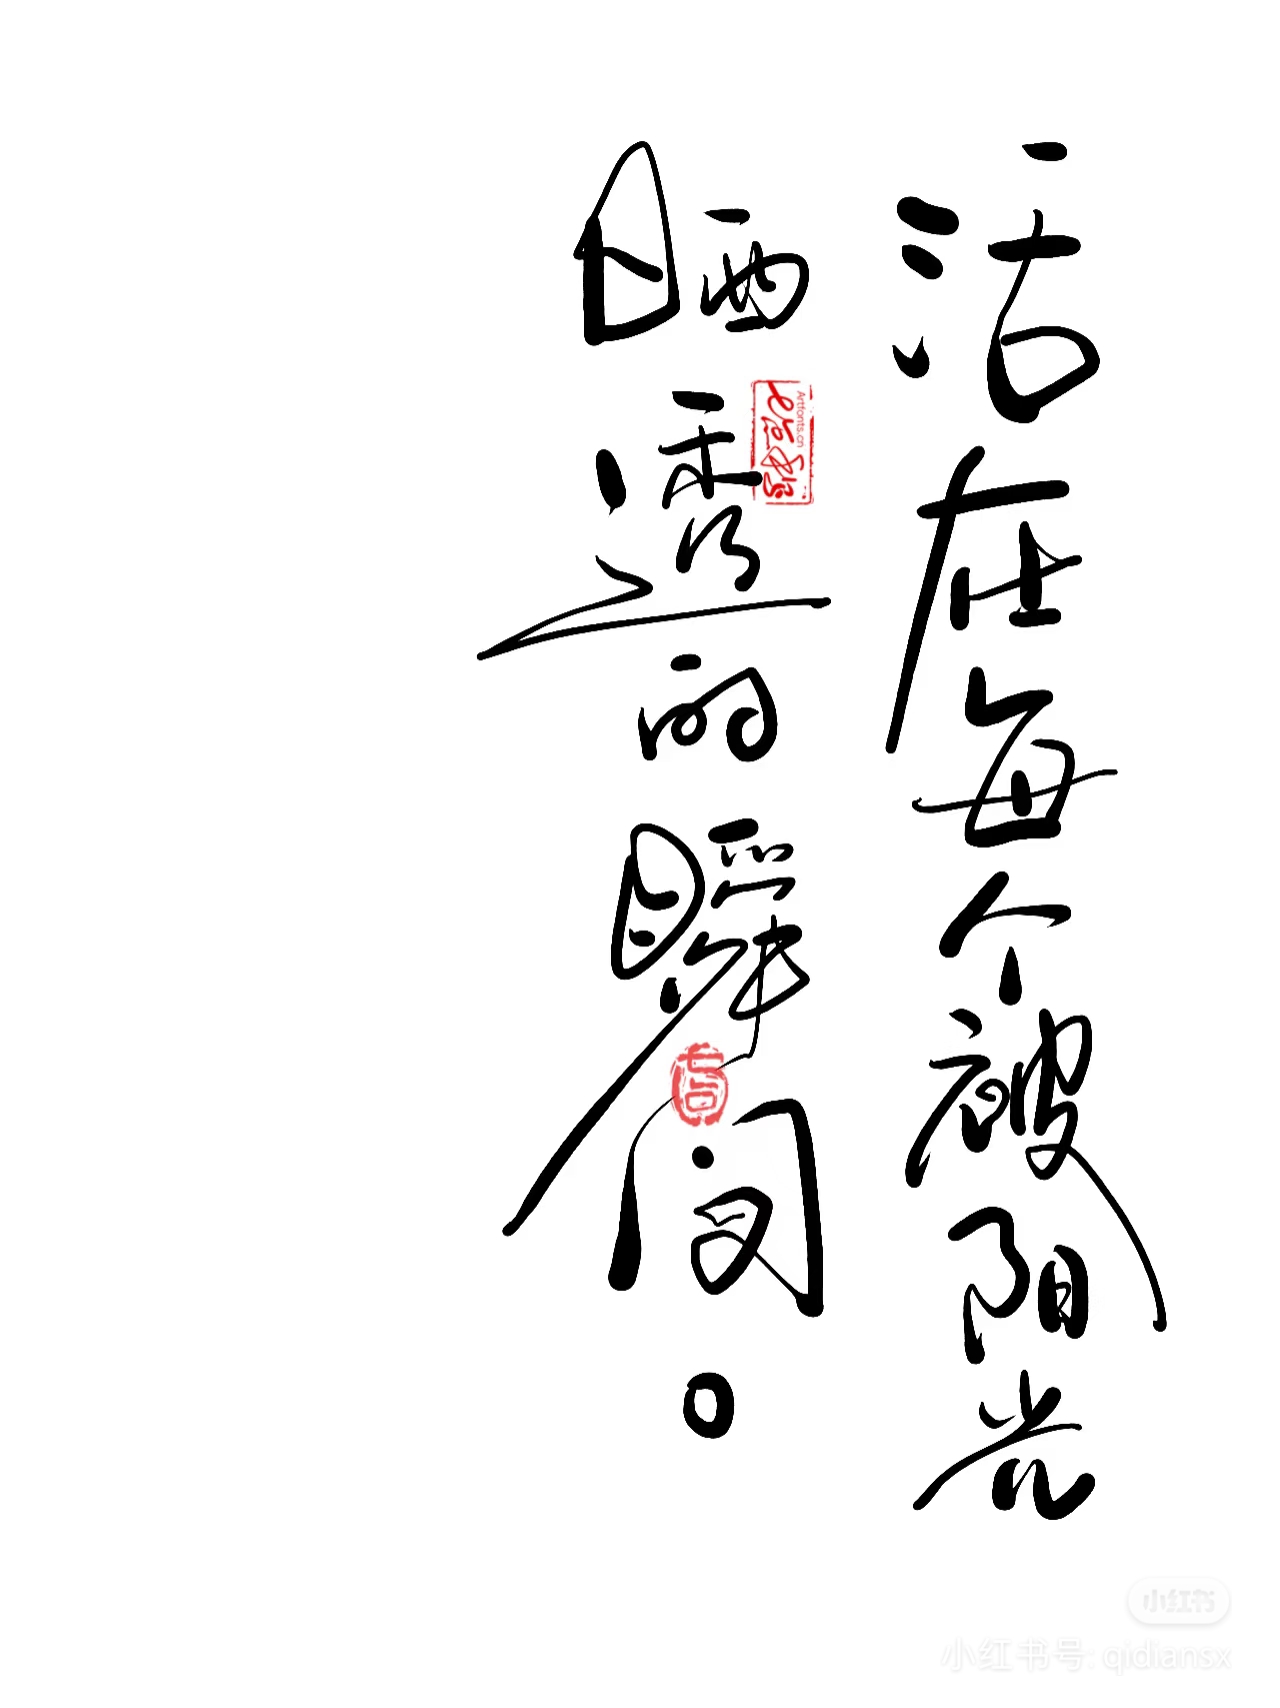 活在每个被阳光
晒透的瞬间。
Artfonts.cn
小红书
小红书号: qidiansx